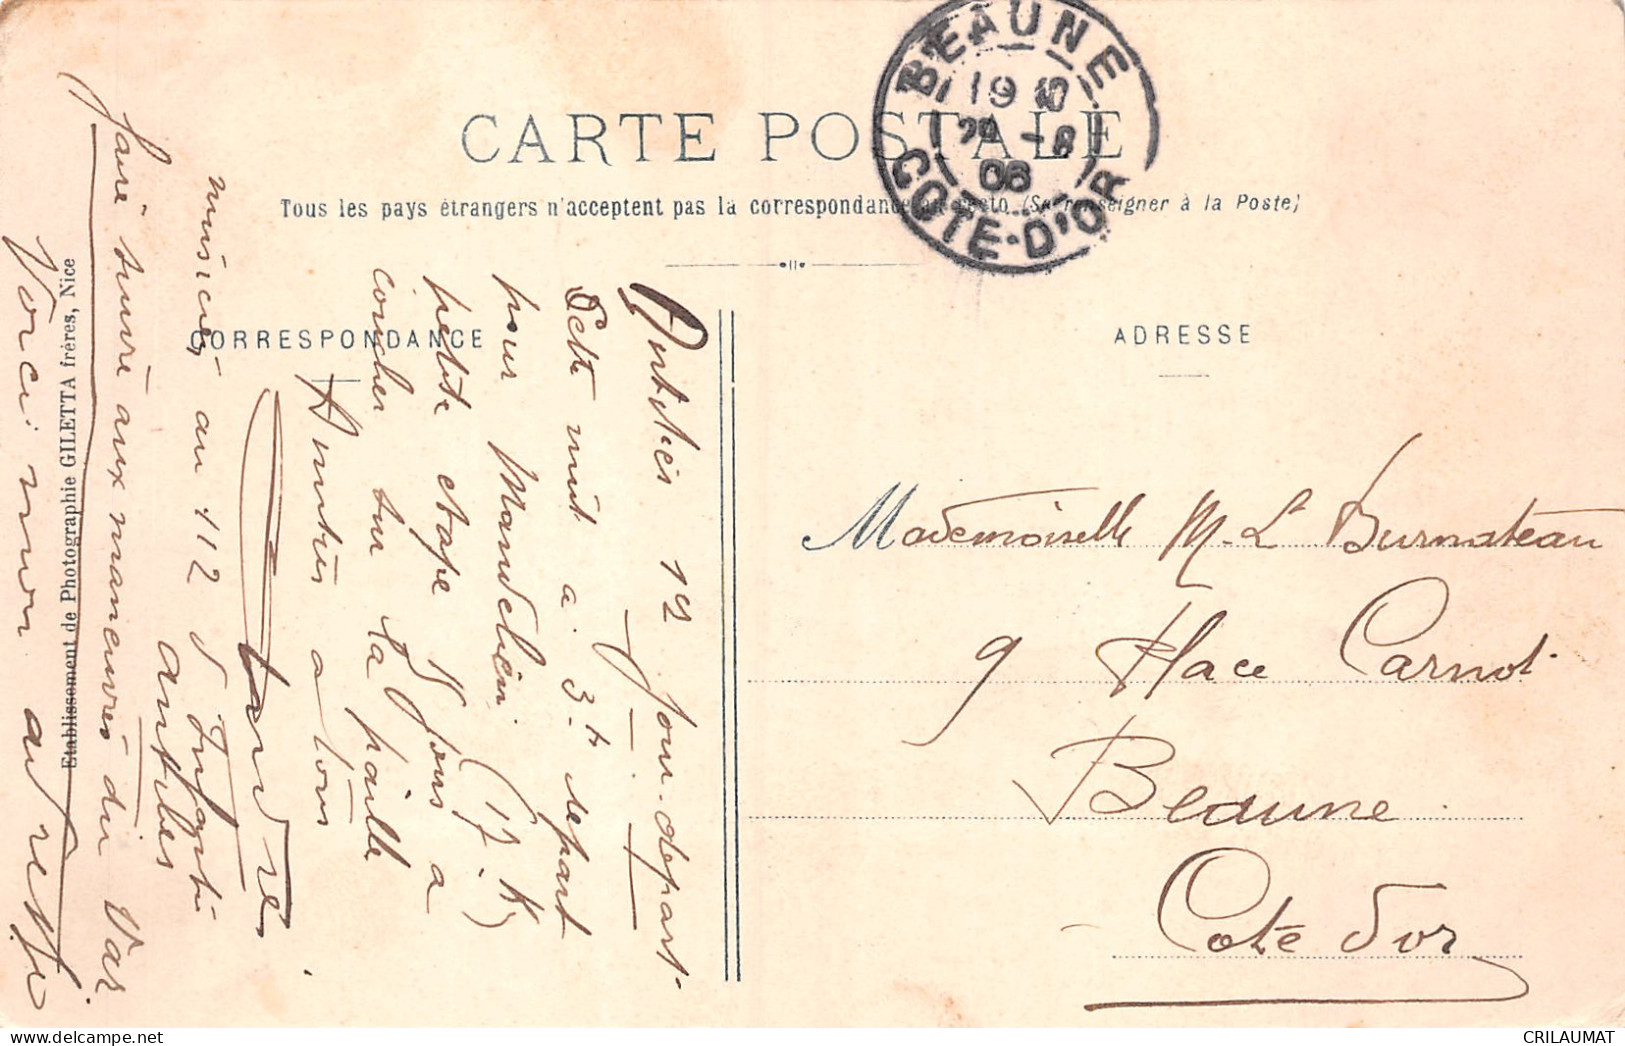 BEAUNE
19 15
29 -8
06
COTE-D'OR
CARTE POSTALE
Tous les pays étrangers n'acceptent pas la correspondance au recto (Se renseigner à la Poste)
CORRESPONDANCE
ADRESSE
Antibes 19 jour-départ-
Cette nuit a 3h départ
pour Mandelieu (17. K)
petite étape 15 jours a
coucher sur la paille
Amitiés a tous
André
Voici mon adresse
faire suivre aux manœuvres du Var
musicien au 112 d'Infanterie
antibes
Mademoiselle M. L Burnateau
9 Place Carnot
Beaune
Cote d'or
Etablissement de Photographie GILETTA frères, Nice
CRILAUMAT